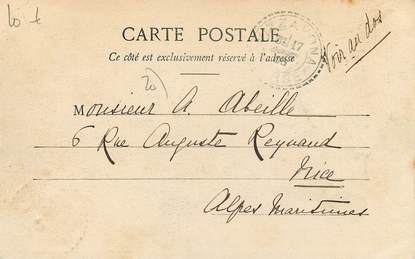 CARTE POSTALE
Ce côté est exclusivement réservé à l'adresse
Voir au dos
20)
Monsieur A. Abeille
6 Rue Auguste Reynaud
Nice
Alpes Maritimes